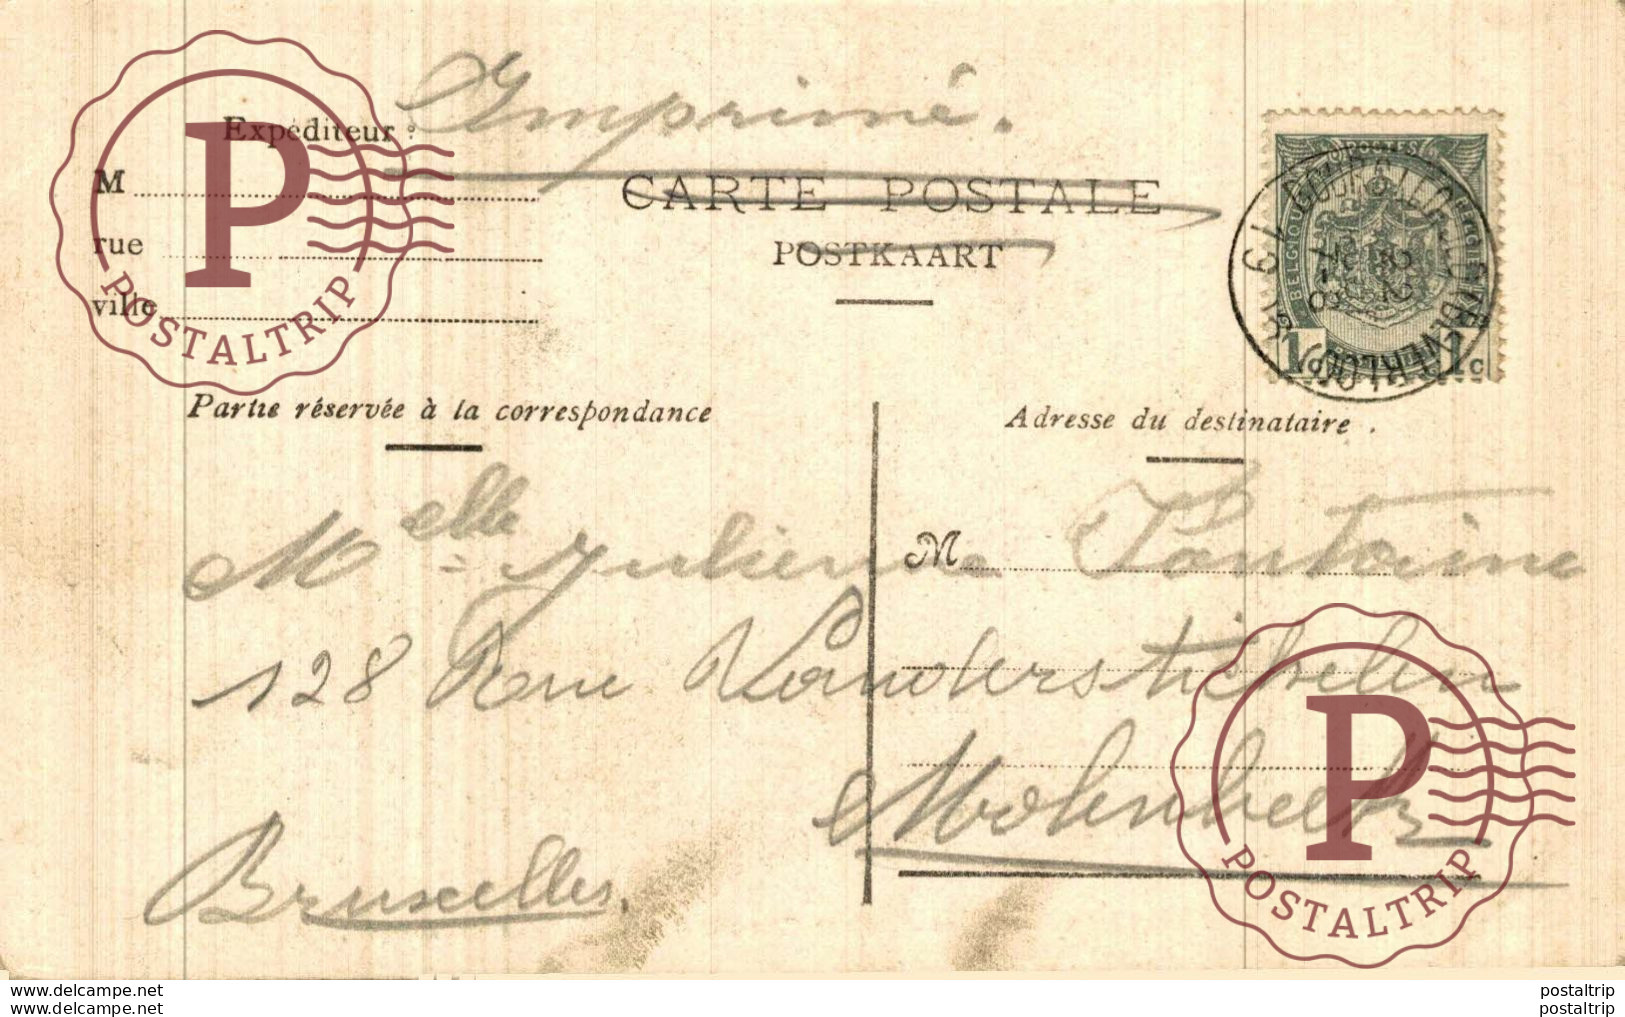 Imprimé.
Expéditeur :
M
rue
ville
CARTE POSTALE
POSTKAART
POSTES
BELGIQUE
1c 1c
Partie réservée à la correspondance
Adresse du destinataire .
Melle Julienne M Fontaine
128 Rue Vanderstichelen
Molenbeek
Bruxelles.
P
POSTALTRIP
P
POSTALTRIP
www.delcampe.net postaltrip
www.delcampe.net postaltrip